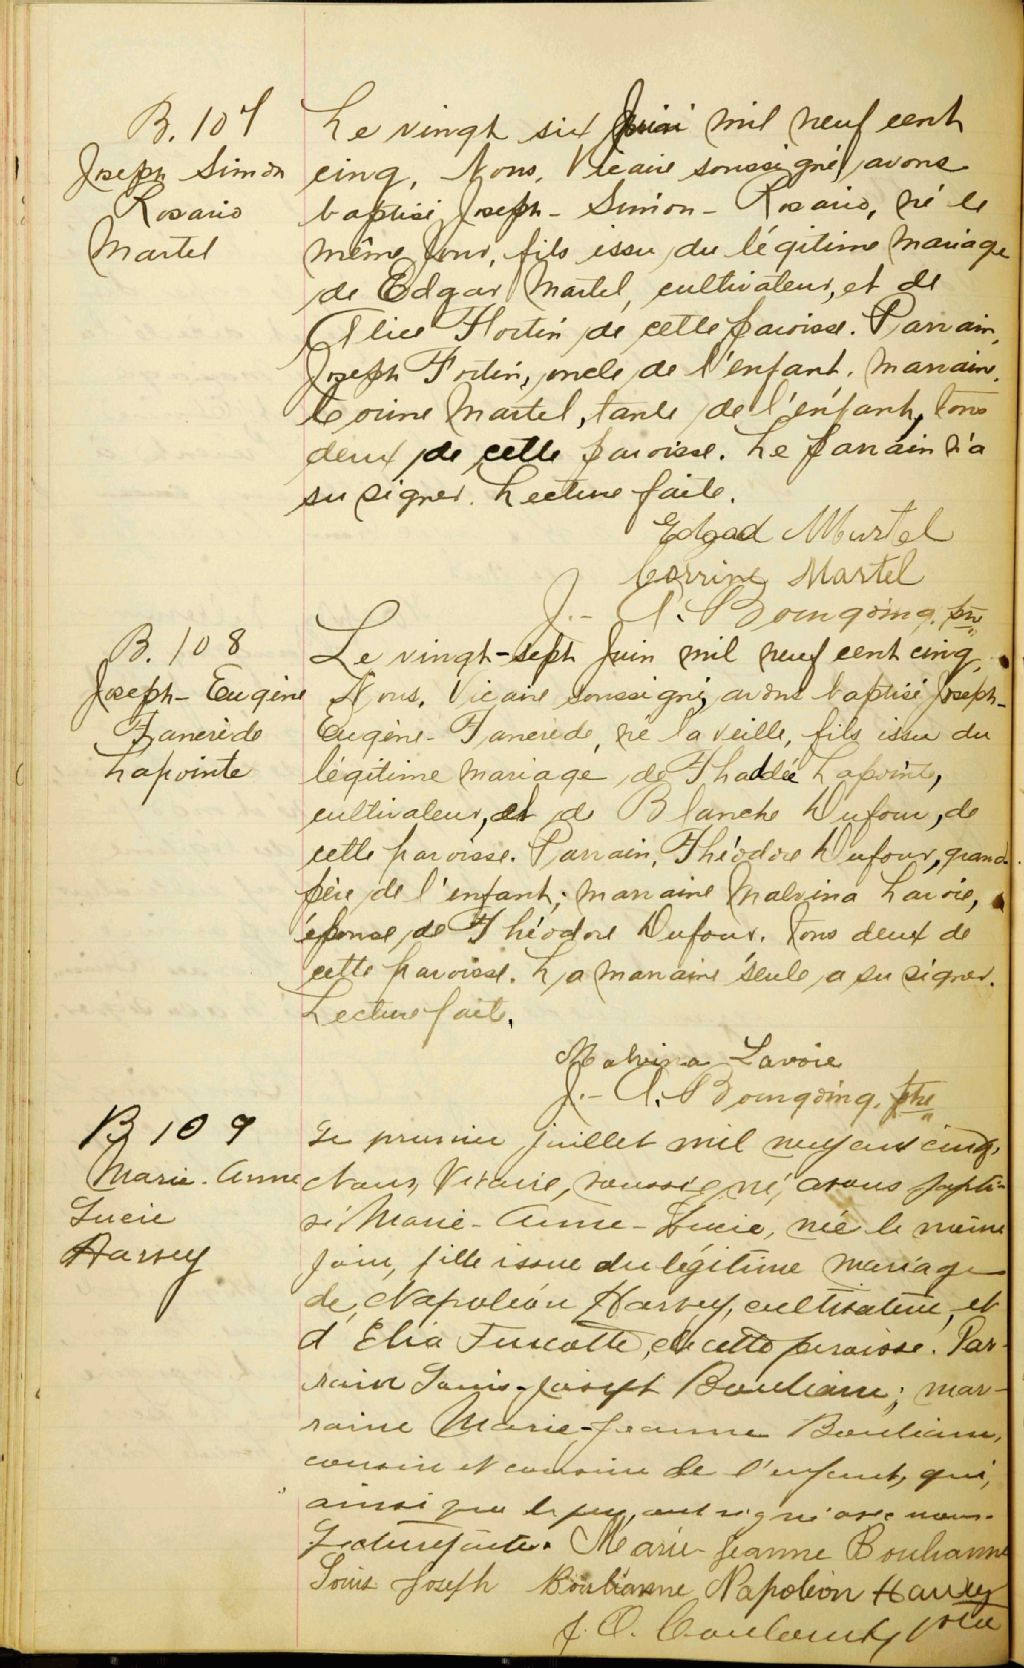 B. 107
Joseph Simon
Rosario
Martel
Le vingt six Juin mil neuf cent
cinq, Nous, Vicaire soussigné, avons
baptisé Joseph-Simon-Rosario, né le
même jour, fils issu du légitime mariage
de Edgar Martel, cultivateur, et de
Alice Fortin de cette paroisse. Parrain,
Joseph Fortin, oncle de l'enfant. Marraine,
Corine Martel, tante de l'enfant, tous
deux de cette paroisse. Le parrain n'a
su signer. Lecture faite.
Edgad Martel
Corrine Martel
J.-A. Bourgoing, ptre
B. 108
Joseph-Eugène
Tancrède
Lapointe
Le vingt-sept Juin mil neuf cent cinq,
Nous, Vicaire soussigné, avons baptisé Joseph-
Eugène-Tancrède, né la veille, fils issu du
légitime mariage de Thaddée Lapointe,
cultivateur, et de Blanche Dufour, de
cette paroisse. Parrain, Théodore Dufour, grand-
père de l'enfant; marraine Malvina Lavoie,
épouse de Théodore Dufour. Tous deux de
cette paroisse. La marraine seule a su signer.
Lecture faite.
Malvina Lavoie
J.-A. Bourgoing, ptre
B 109
Marie-Anne
Lucie
Harvey
Le premier juillet mil neuf cent cinq,
Nous, Vicaire, soussigné, avons bapti-
sé Marie-Anne-Lucie, née le même
jour, fille issue du légitime mariage
de Napoléon Harvey, cultivateur, et
d'Elia Turcotte, de cette paroisse. Par-
rain Louis-Joseph Bouliane; mar-
raine Marie-Jeanne Bouliane,
cousin et cousine de l'enfant, qui,
ainsi que le père, ont signé avec nous.
Lecture faite. Marie-Jeanne Boulianne
Louis Joseph Boulianne Napoléon Harvey
J. O. ptre